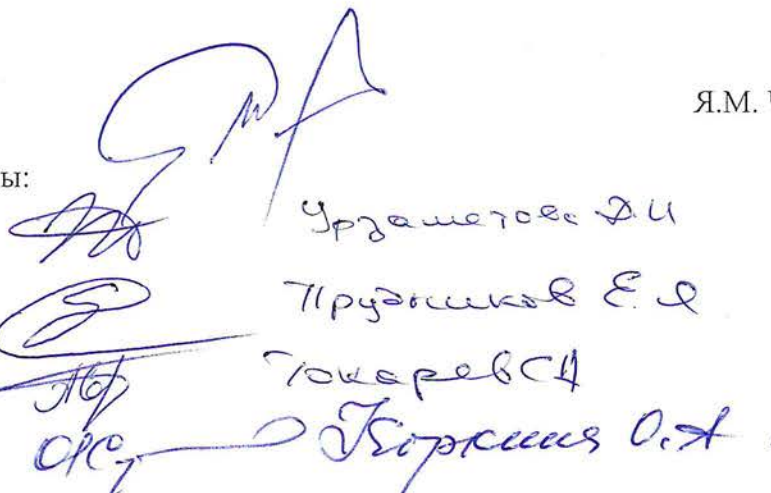 Я.М.
ы:
Урзаметова Д.И
Прудников Е.Я
Токарев СА
Коркина О.А